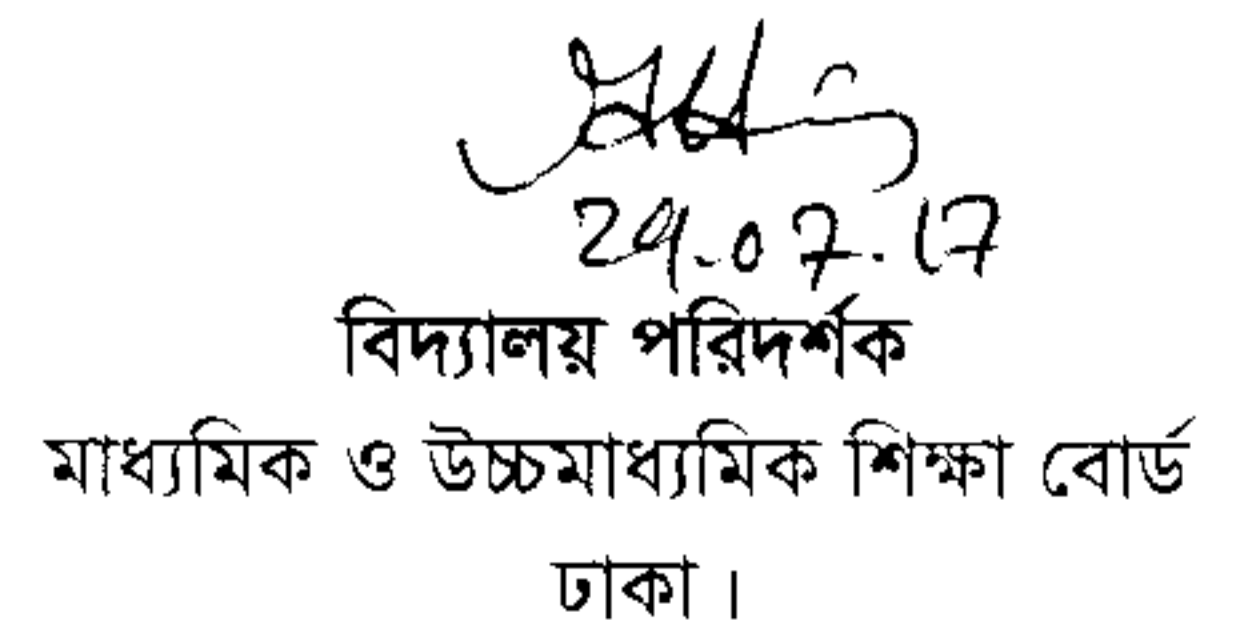 29.07.17
বিদ্যালয় পরিদর্শক
মাধ্যমিক ও উচ্চমাধ্যমিক শিক্ষা বোর্ড
ঢাকা ।